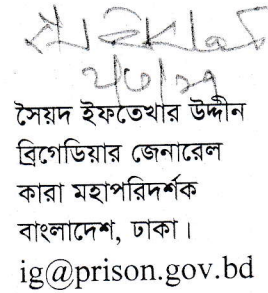 সৈয়দ ইফতেখার উদ্দীন
ব্রিগেডিয়ার জেনারেল
কারা মহাপরিদর্শক
বাংলাদেশ, ঢাকা।
ig@prison.gov.bd